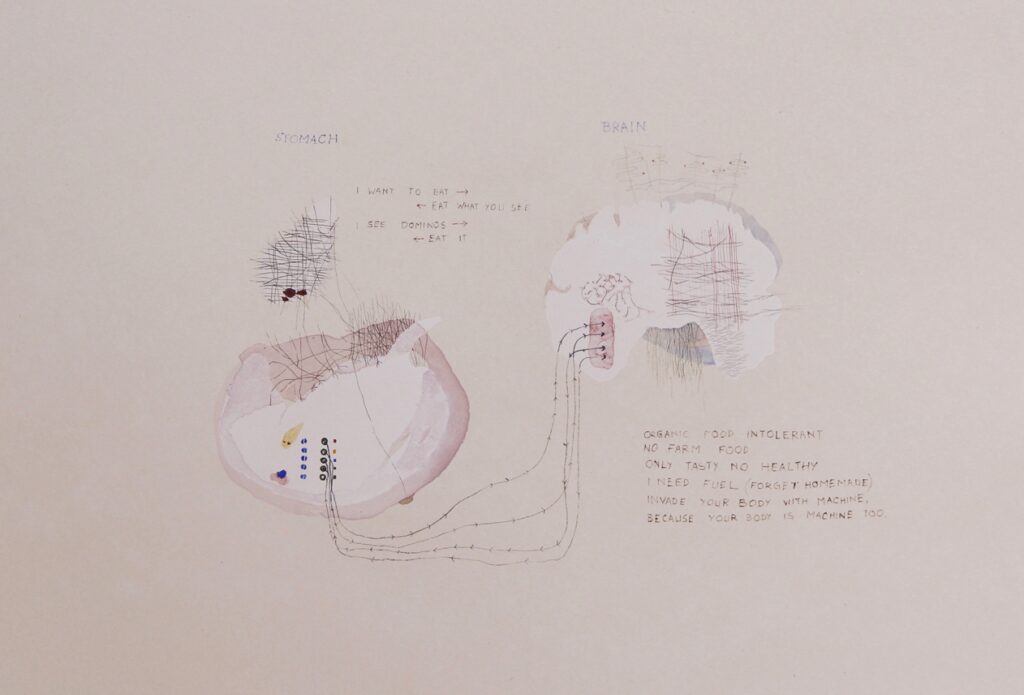 STOMACH
BRAIN
I WANT TO EAT →
← EAT WHAT YOU SEE
I SEE DOMINOS →
← EAT IT
ORGANIC FOOD INTOLERANT
NO FARM FOOD
ONLY TASTY NO HEALTHY
I NEED FUEL (FORGET HOMEMADE)
INVADE YOUR BODY WITH MACHINE,
BECAUSE YOUR BODY IS MACHINE TOO.